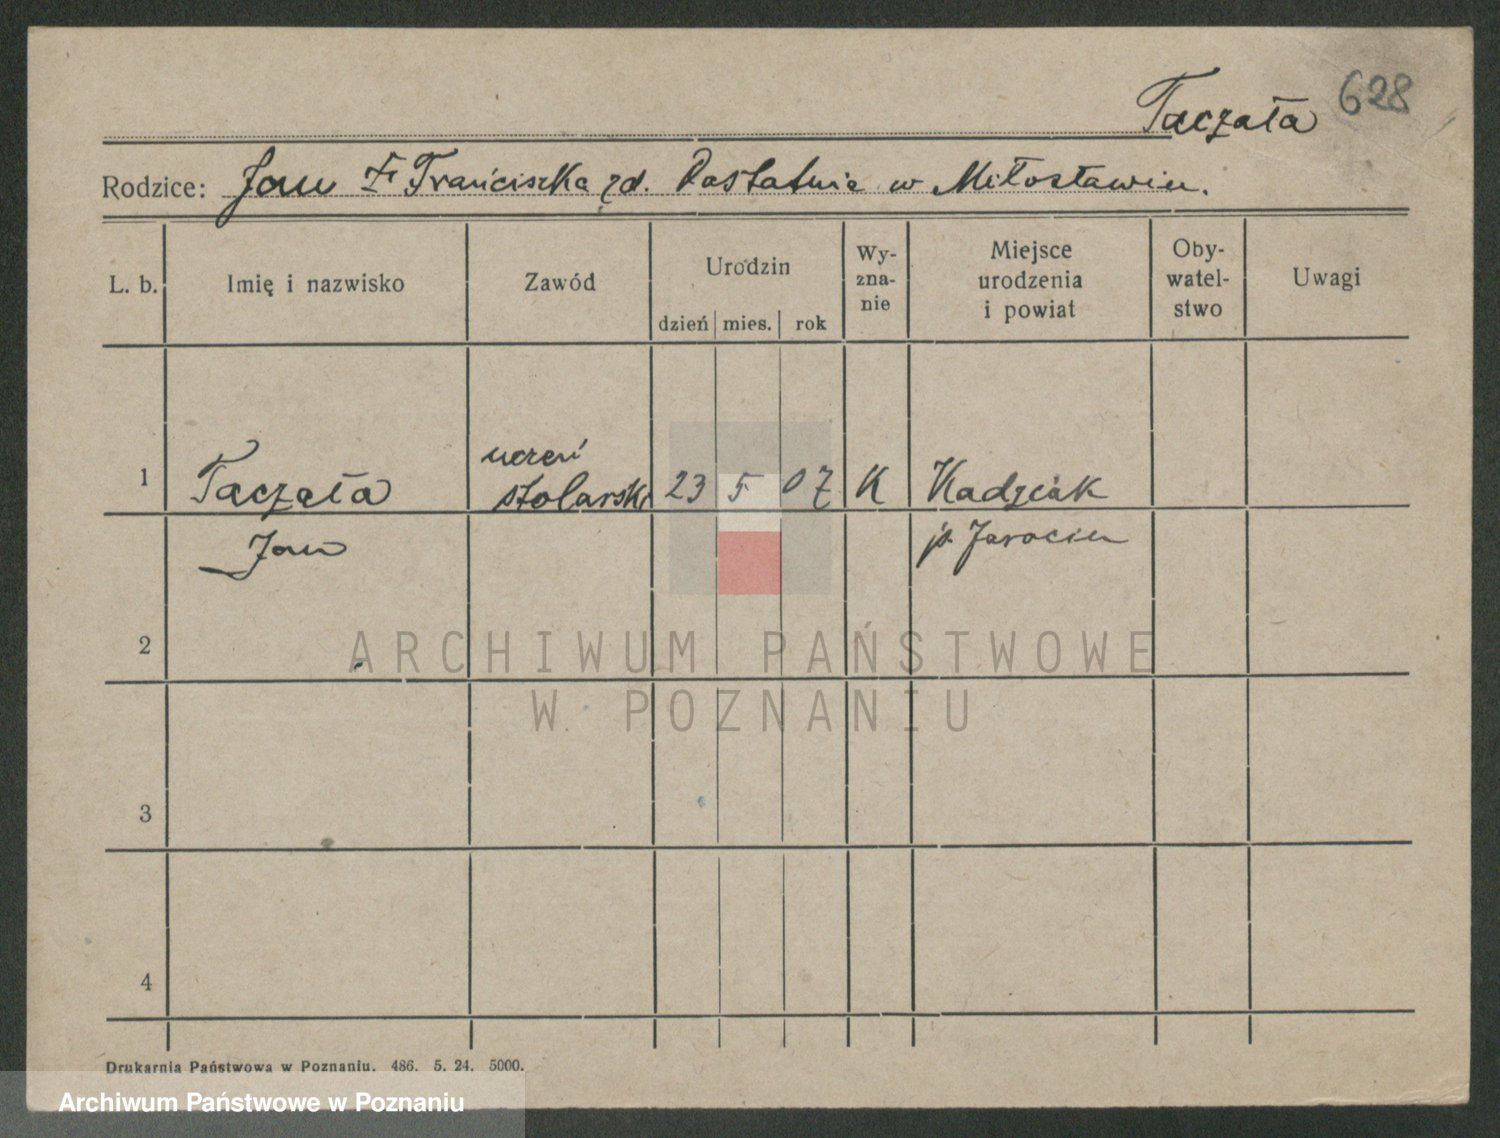 Taczała 628
Rodzice: Jan Franciszka zd. w Miłosławiu.
L. b. Imię i nazwisko Zawód Urodzin dzień mies. rok Wy-
zna-
nie Miejsce
urodzenia
i powiat Oby-
watel-
stwo Uwagi
1 Taczała uczeń
stolarski 23 5 07 K Radziak
Jan p. Jarocin
2
3
4
Drukarnia Państwowa w Poznaniu. 486. 5. 24. 5000.
ARCHIWUM PAŃSTWOWE
W POZNANIU
Archiwum Państwowe w Poznaniu